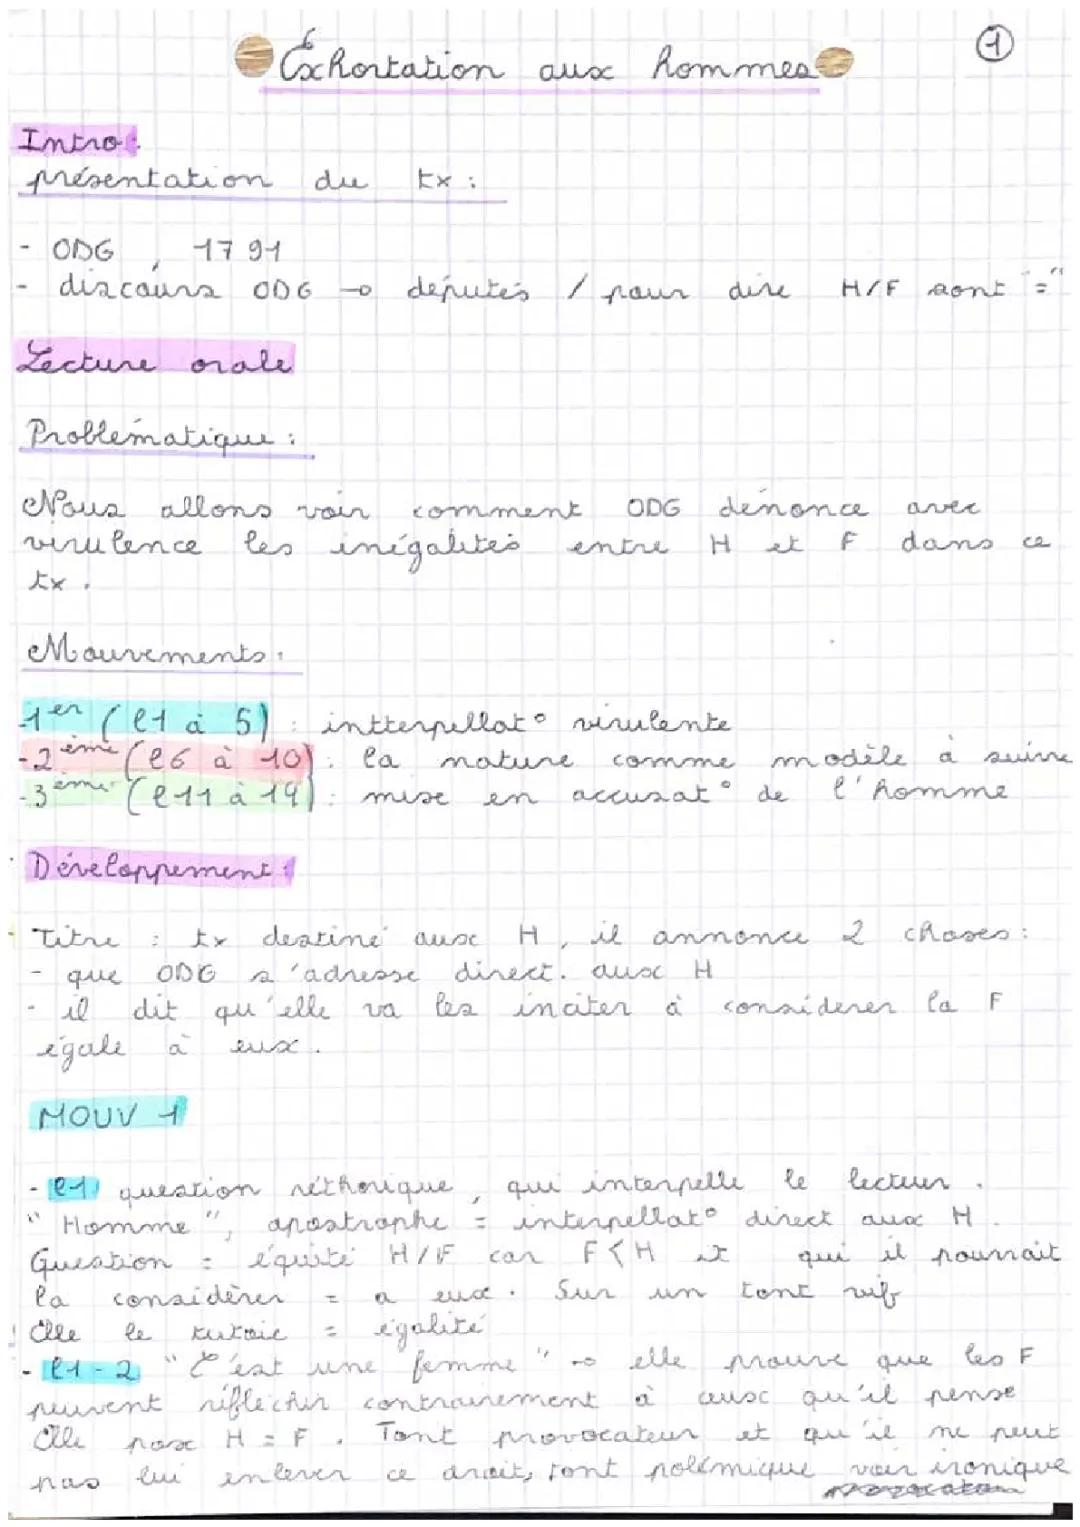 Exhortation aux hommes
1
Intro :
présentation du tx :
- ODG, 1791
- discours ODG → députés / pour dire H/F sont "="
Lecture orale
Problématique :
Nous allons voir comment ODG dénonce avec
virulence les inégalités entre H et F dans ce
tx.
Mouvements :
-1er (l1 à 5) : intterpellat° virulente
-2ème (l6 à 10) : la nature comme modèle à suivre
-3ème (l11 à 19) : mise en accusat° de l'homme
Développement :
- Titre : tx destiné aux H, il annonce 2 choses :
- que ODG s'adresse direct. aux H
- il dit qu'elle va les inciter à considérer la F
égale à eux.
MOUV 1
- l1 question réthorique, qui interpelle le lecteur.
"Homme", apostrophe = interpellat° direct aux H.
Question = équité H/F car F<H et qui il pourrait
la considérer = a eux. Sur un tont vif
! Elle le tutoie = égalité
- l1-2 "C'est une femme" → elle prouve que les F
peuvent réflechir contrairement à ceusc qu'il pense
Elle pose H = F. Tont provocateur et qu'il ne peut
pas lui enlever ce droit, tont polémique voir ironique